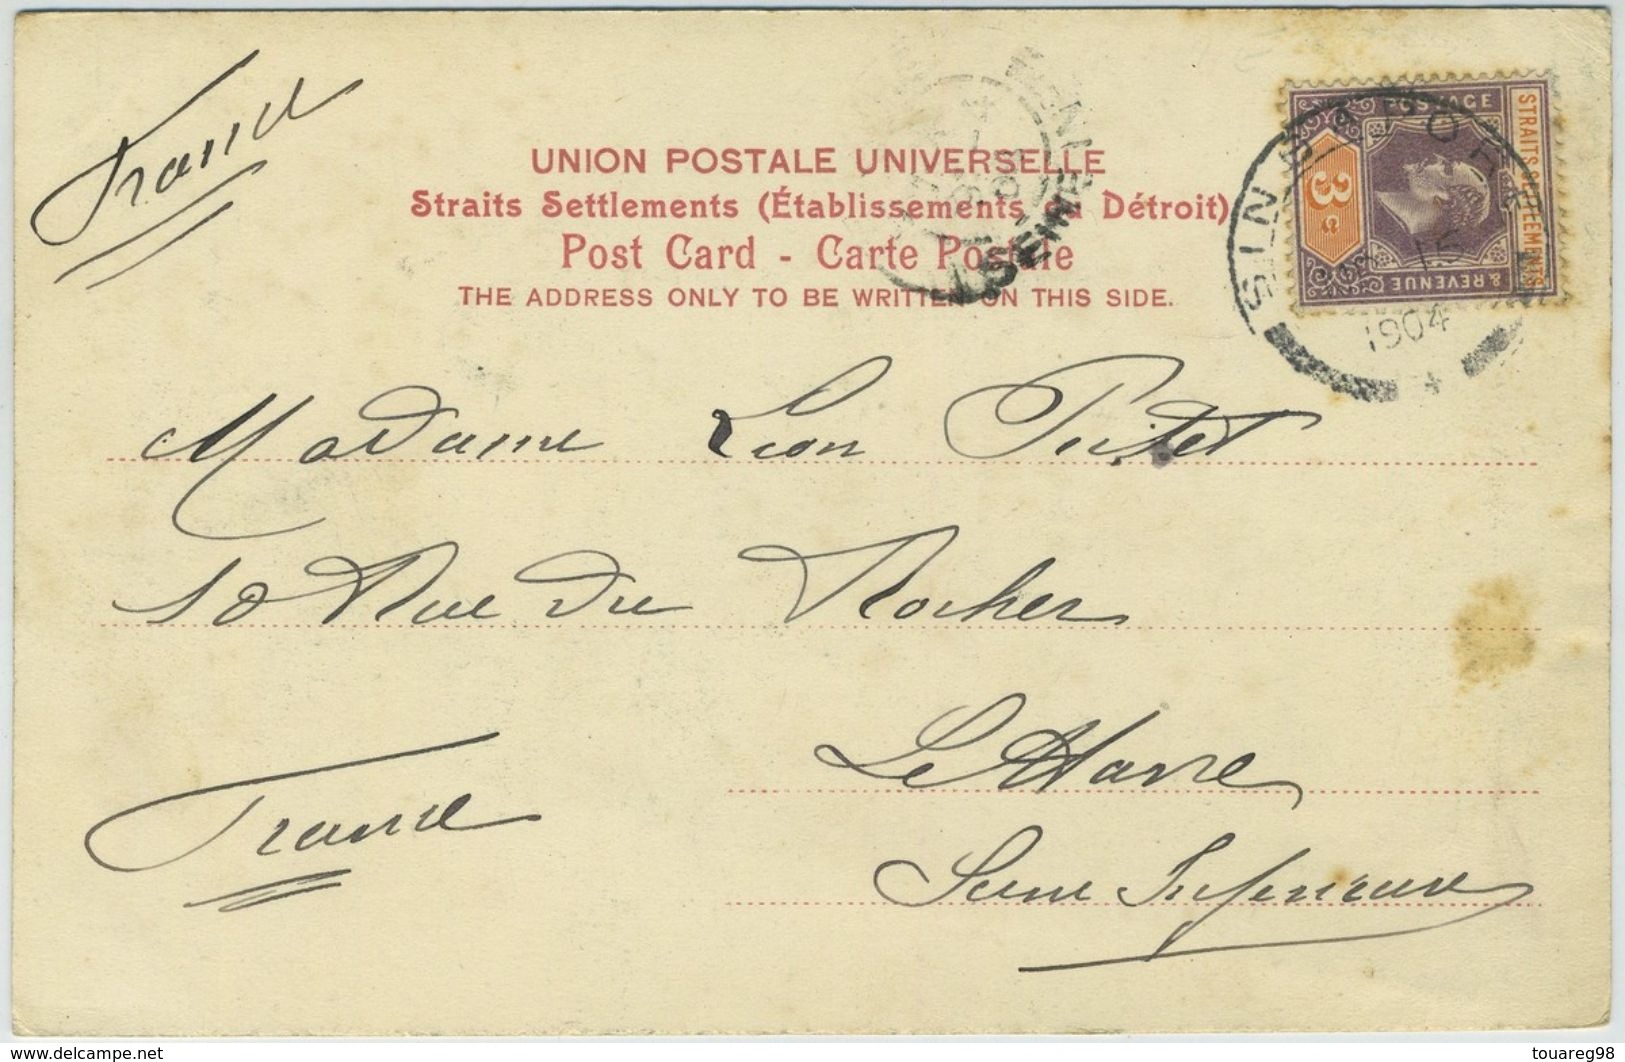 France
UNION POSTALE UNIVERSELLE
Straits Settlements (Établissements du Détroit)
Post Card - Carte Postale
THE ADDRESS ONLY TO BE WRITTEN ON THIS SIDE.
STRAITS SETTLEMENTS
POSTAGE
& REVENUE
3 c
SINGAPORE
15
1904
SEINE
Madame Léon
10 Rue du Rocher
Le Havre
France
Seine Inférieure
delcampe.net
touareg98